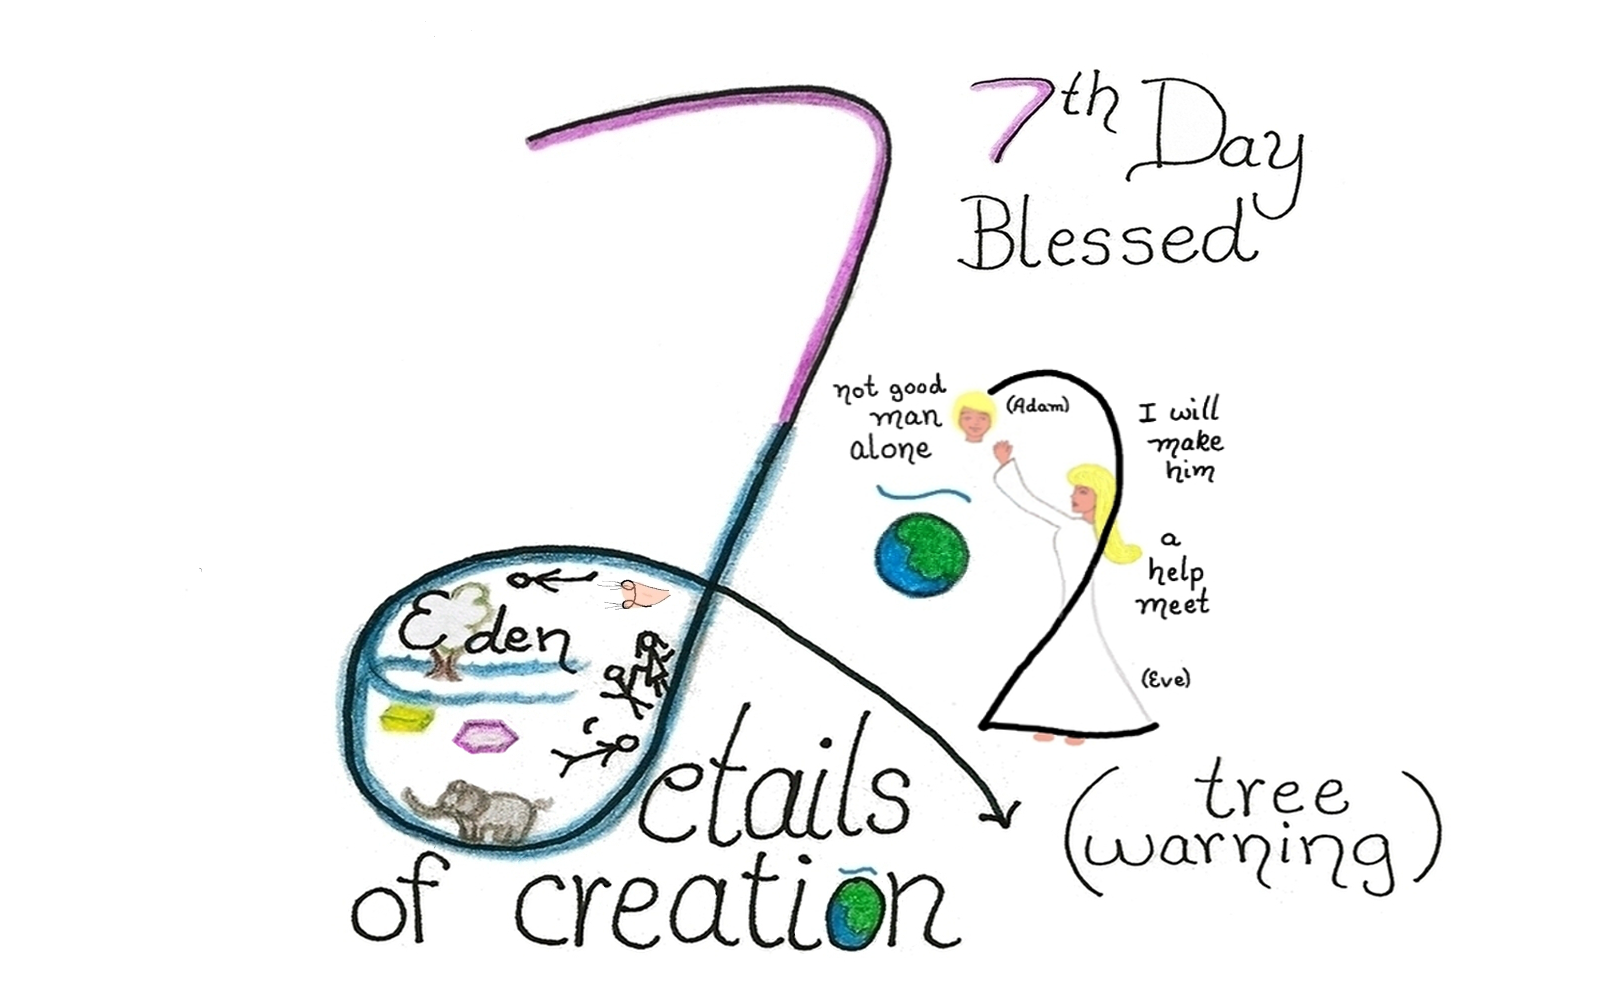 7th Day
Blessed
not good
man
alone
(Adam)
I will
make
him
a
help
meet
(Eve)
Eden
Details
of creation
(tree
warning)